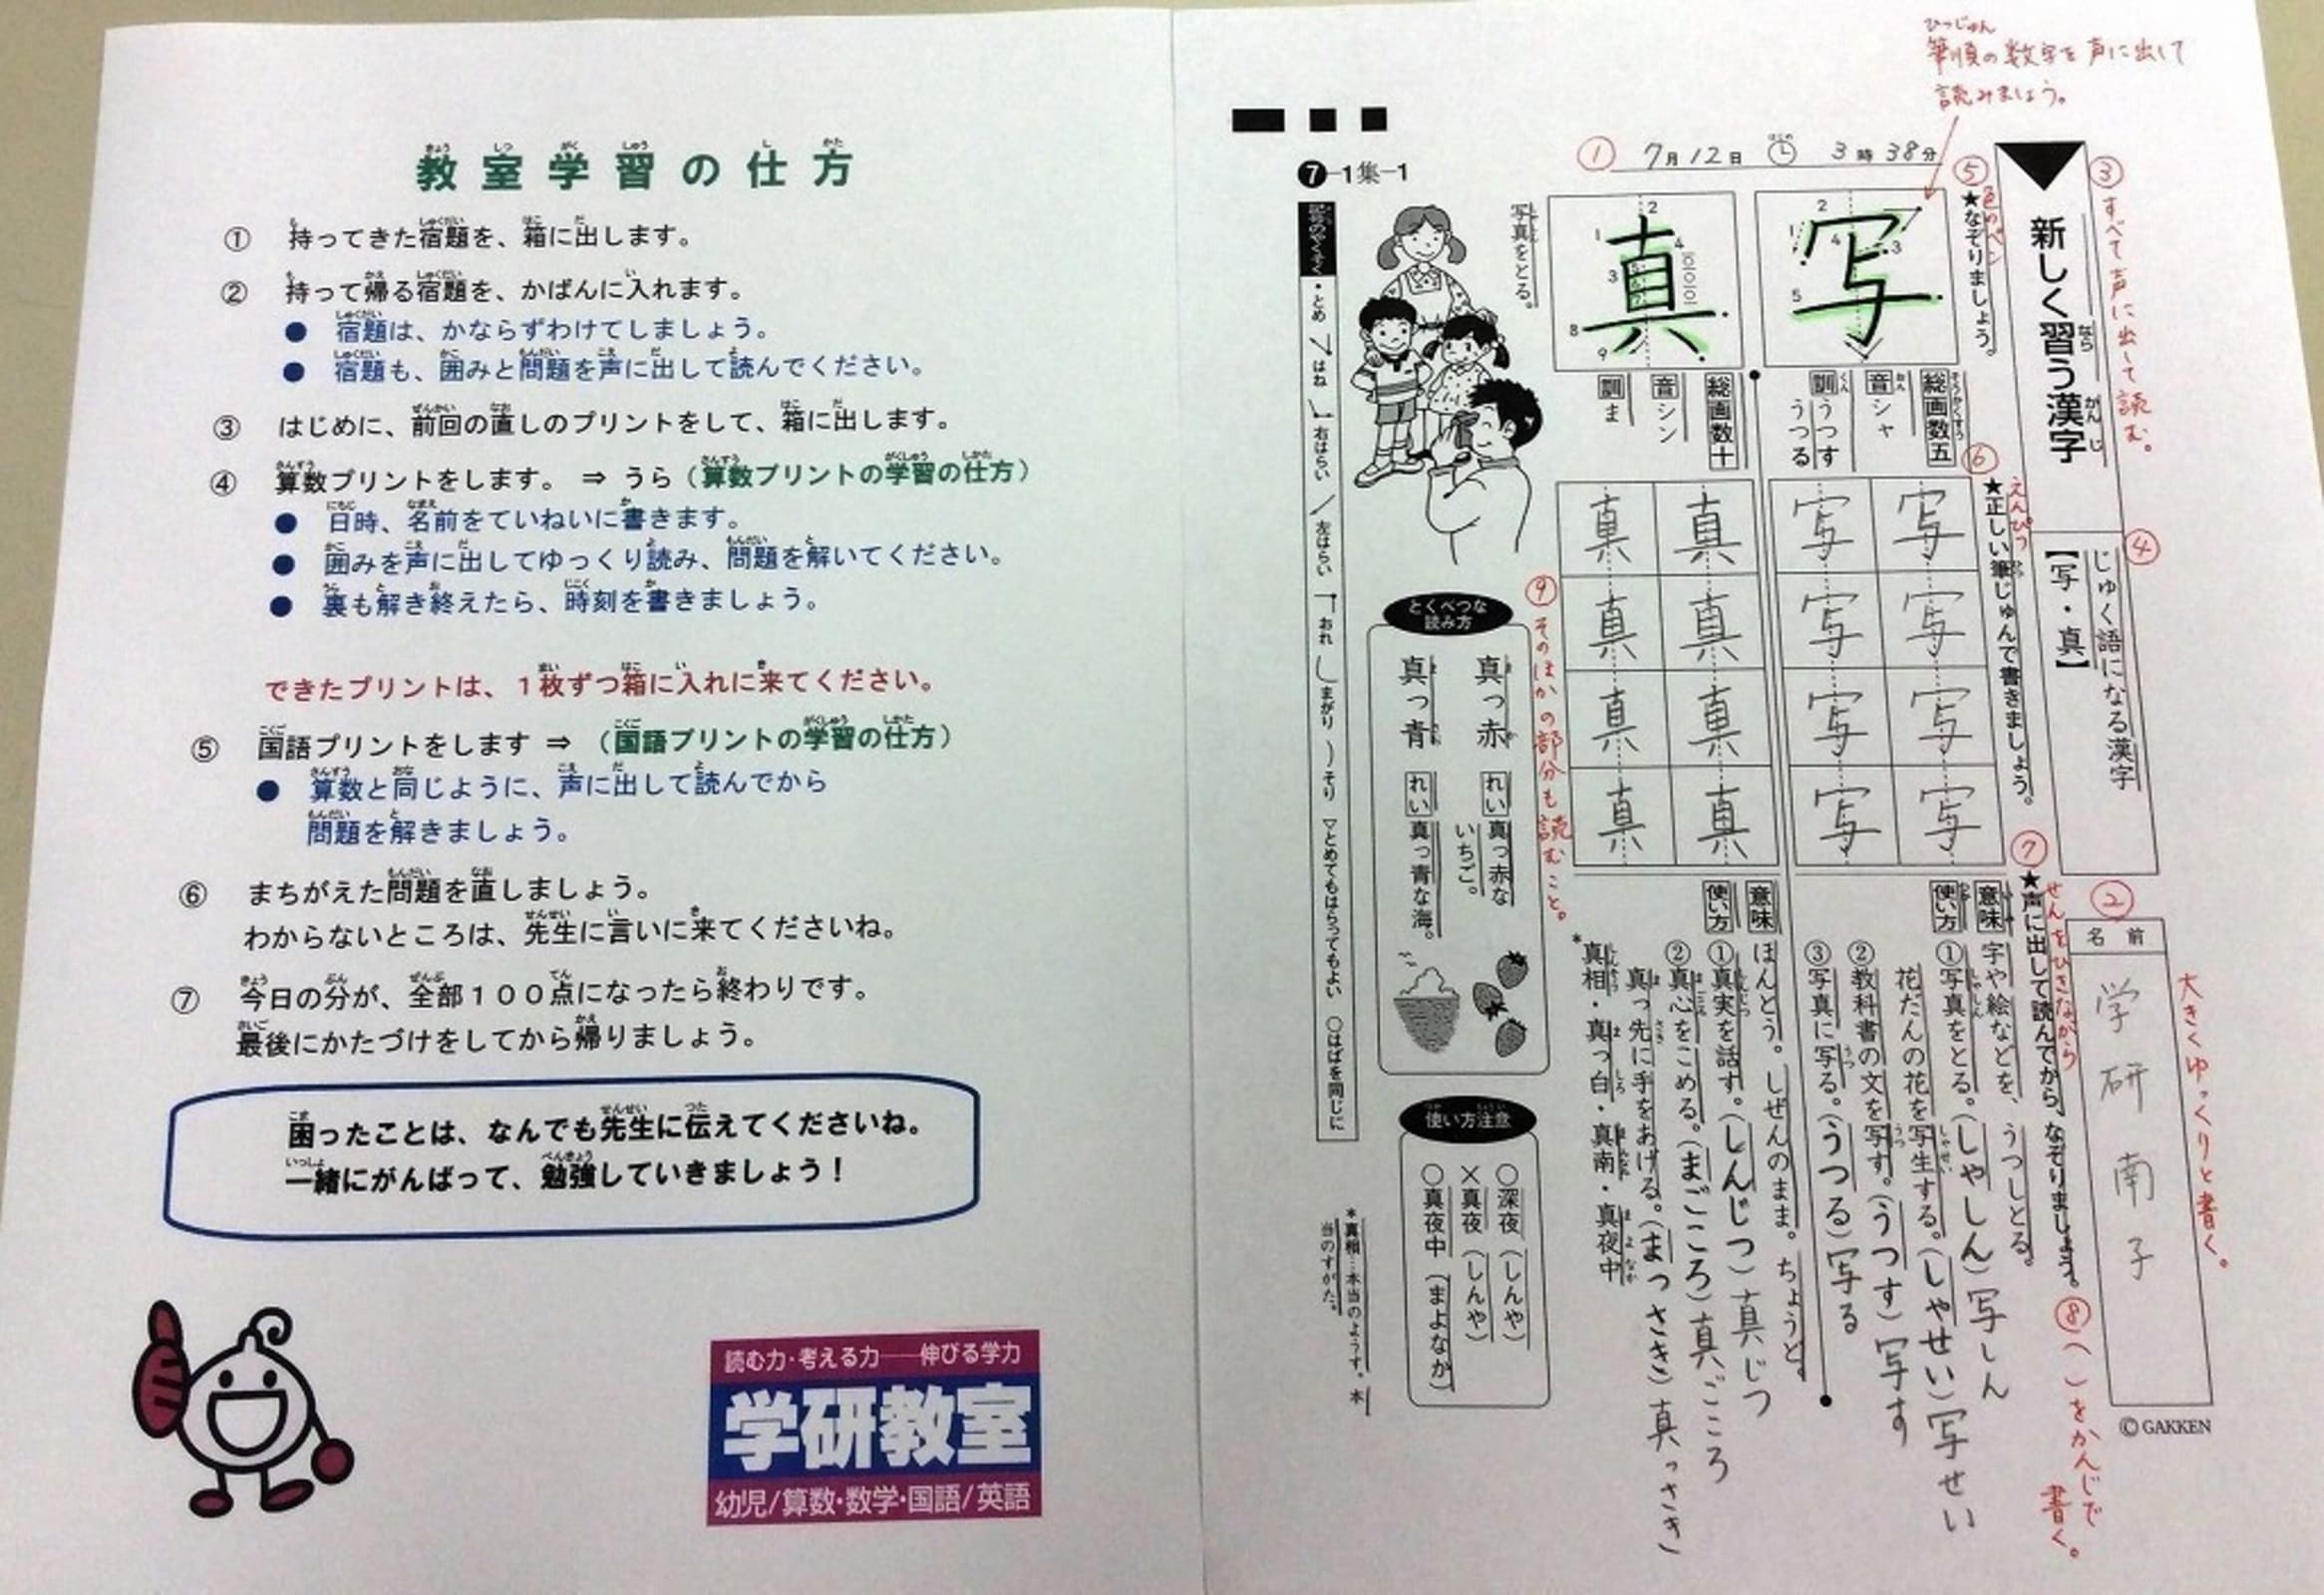 教室学習の仕方
① 持ってきた宿題を、箱に出します。
② 持って帰る宿題を、かばんに入れます。
● 宿題は、かならずわけてしましょう。
● 宿題も、囲みと問題を声に出して読んでください。
③ はじめに、前回の直しのプリントをして、箱に出します。
④ 算数プリントをします。 ⇒ うら（算数プリントの学習の仕方）
● 日時、名前をていねいに書きます。
● 囲みを声に出してゆっくり読み、問題を解いてください。
● 裏も解き終えたら、時刻を書きましょう。
できたプリントは、１枚ずつ箱に入れに来てください。
⑤ 国語プリントをします ⇒ （国語プリントの学習の仕方）
● 算数と同じように、声に出して読んでから
問題を解きましょう。
⑥ まちがえた問題を直しましょう。
わからないところは、先生に言いに来てくださいね。
⑦ 今日の分が、全部１００点になったら終わりです。
最後にかたづけをしてから帰りましょう。
困ったことは、なんでも先生に伝えてくださいね。
一緒にがんばって、勉強していきましょう！
読む力・考える力──伸びる学力
学研教室
幼児/算数・数学・国語/英語
ひつじゅん
筆順の数字を声に出して
読みましょう。
① 7月12日 3時38分
❼-1集-1
③ すべて声に出して読む。
新しく習う漢字
④
じゅく語になる漢字
【写・真】
②
名前
学研南子
大きくゆっくりと書く。
© GAKKEN
⑤ 色のペン
★なぞりましょう。
写
総画数五
音 シャ
訓 うつす
うつる
真
総画数十
音 シン
訓 ま
写真をとる。
⑥ えんぴつ
★正しい筆じゅんで書きましょう。
写 写 写 写
写 写 写 写
真 真 真 真
真 真 真 真
⑦ せんをひきながら
★声に出して読んでから、なぞりましょう。
⑧ （ ）をかんじで
書く。
意味 字や絵などを、うつしとる。
使い方 ①写真をとる。（しゃしん）写しん
花だんの花を写生する。（しゃせい）写せい
②教科書の文を写す。（うつす）写す
③写真に写る。（うつる）写る
意味 ほんとう。しぜんのまま。ちょうど。
使い方 ①真実を話す。（しんじつ）真じつ
②真心をこめる。（まごころ）真ごころ
真っ先に手をあげる。（まっさき）真っさき
*真相・真っ白・真南・真夜中
⑨ そのほかの部分も読むこと。
とくべつな
読み方
真っ赤 れい 真っ赤な
いちご。
真っ青 れい 真っ青な海。
使い方注意
○深夜（しんや）
×真夜（しんや）
○真夜中（まよなか）
*真相…本当のようす。本
当のすがた。
記号のやくそく ・とめ はね 右はらい 左はらい おれ まがり そり ▽とめてもはらってもよい ○はばを同じに